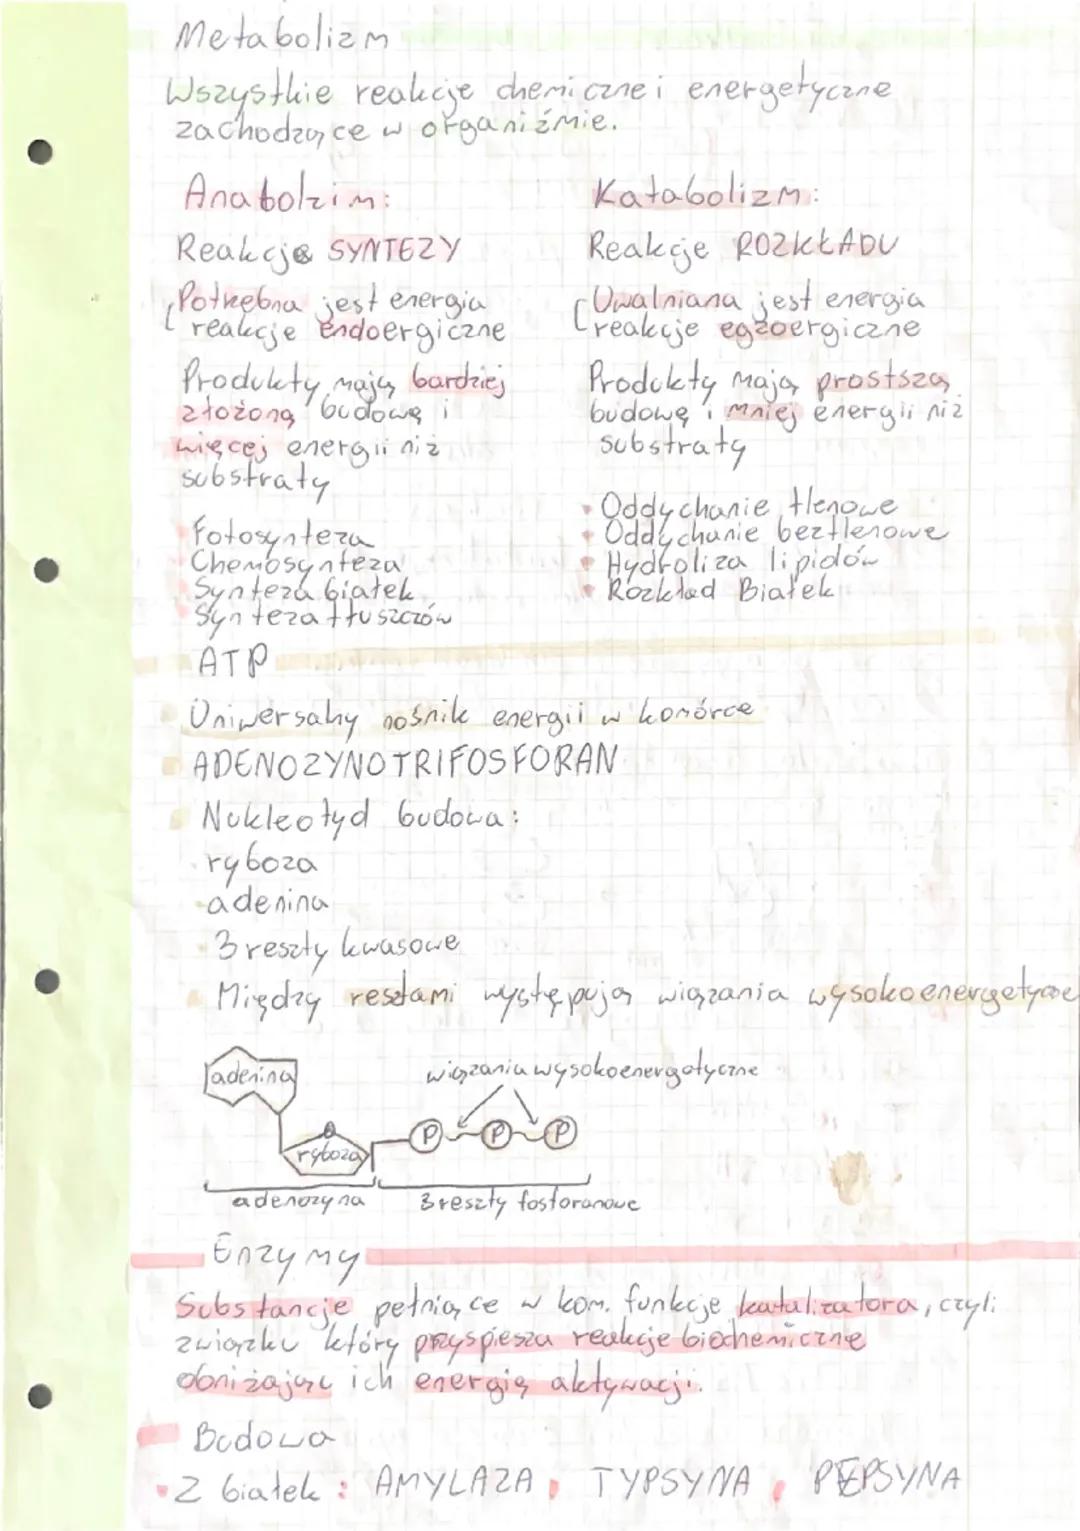 Metabolizm
Wszystkie reakcje chemiczne i energetyczne
zachodzące w organiźmie.
Anabolzim:
Reakcje SYNTEZY
Potrzebna jest energia
reakcje endoergiczne
Produkty mają bardziej
złożoną budowę i
więcej energii niż
substraty
Fotosynteza
Chemosynteza
Synteza białek
Synteza tłuszczów
Katabolizm:
Reakcje ROZKŁADU
Uwalniana jest energia
reakcje egzoergiczne
Produkty mają prostszą
budowę i mniej energii niż
substraty
Oddychanie tlenowe
Oddychanie beztlenowe
Hydroliza lipidów
Rozkład Białek
ATP
Uniwersalny nośnik energii w komórce
ADENOZYNOTRIFOSFORAN
Nukleotyd budowa:
ryboza
adenina
3 reszty kwasowe
Między resztami występują wiązania wysokoenergetyczne
adenina
wiązania wysokoenergetyczne
P P P
ryboza
adenozyna
3 reszty fosforanowe
Enzymy
Substancje pełniące w kom. funkcje katalizatora, czyli
związku który przyspiesza reakcje biochemiczne
obniżając ich energię aktywacji.
Budowa
Z białek: AMYLAZA, TYPSYNA, PEPSYNA